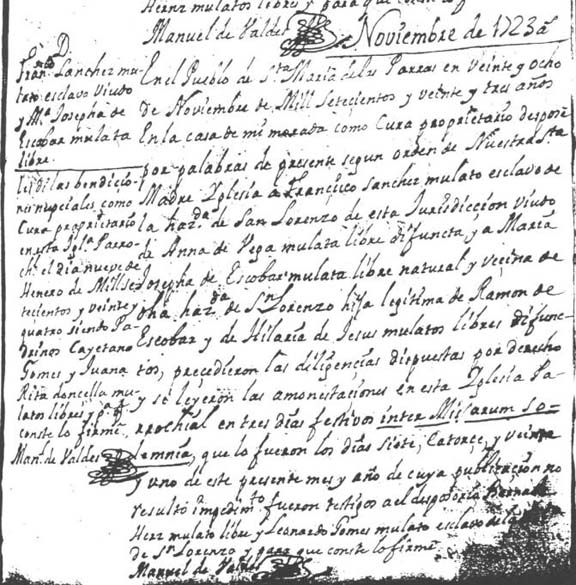 Hernz mulatos libres y para que conste lo f
Manuel de Valdes
Noviembre de 1723 a
D.
Franco Sanchez mu-
lato esclavo Viudo
y Ma Josepha de
Escobar mulata
libre.
les di las bendicio-
nes nupciales como
Cura proprietario
en esta Igla Parro-
chl el dia nueve de
Henero de Mill se-
tecientos y veinte y
quatro siendo Pa-
drinos Cayetano
Gomes y Juana
Rita doncella mu-
latos libres y pa q
conste lo firmé
Man. de Valdes
En el Pueblo de Sta Maria de las Parras en veinte y ocho
de Noviembre de Mill Setecientos y veinte y tres años
En la casa de mi morada como Cura proprietario despose
por palabras de presente segun orden de Nuestra Sta
Madre Yglesia a Francisco Sanchez mulato esclavo de
la hazda de San Lorenzo de esta Jurisdiccion viudo
de Anna de Vega mulata libre difuncta, y a Maria
Josepha de Escobar mulata libre natural y vecina de
dha hazda de Sn Lorenzo hija legitima de Ramon de
Escobar y de Hilaria de Jesus mulatos libres difunc-
tos, precedieron las diligencias dispuestas por derecho
y se leyeron las amonestaciones en esta Yglesia Pa-
rrochial en tres dias festivos inter Missarum so-
lemnia, que lo fueron los dias siete, Catorce, y veinte
y uno de este presente mes y año de cuya publicacion no
resultó impedimto fueron testigos a el desposorio
Hernz mulato libre y Leonardo Gomes mulato esclavo de la
de Sn Lorenzo y para que conste lo firmé
Manuel de Valdes